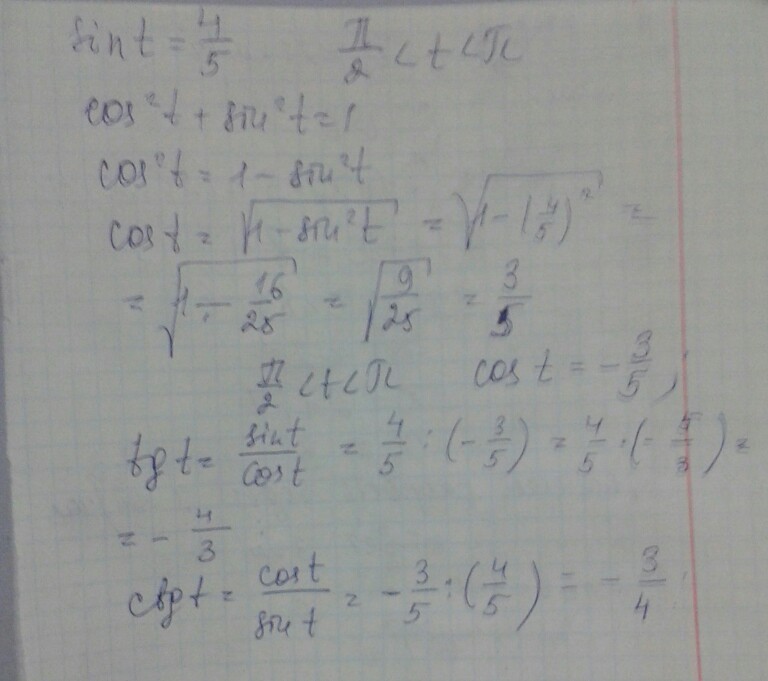 sin t = 4/5    π/2 < t < π
cos²t + sin²t = 1
cos²t = 1 - sin²t
cos t = √(1 - sin²t) = √(1 - (4/5)²) =
= √(1 - 16/25) = √(9/25) = 3/5
π/2 < t < π    cos t = - 3/5 ;
tg t = sin t/cos t = 4/5 : (- 3/5) = 4/5 · (- 5/3) =
= - 4/3
ctg t = cos t/sin t = - 3/5 : (4/5) = - 3/4